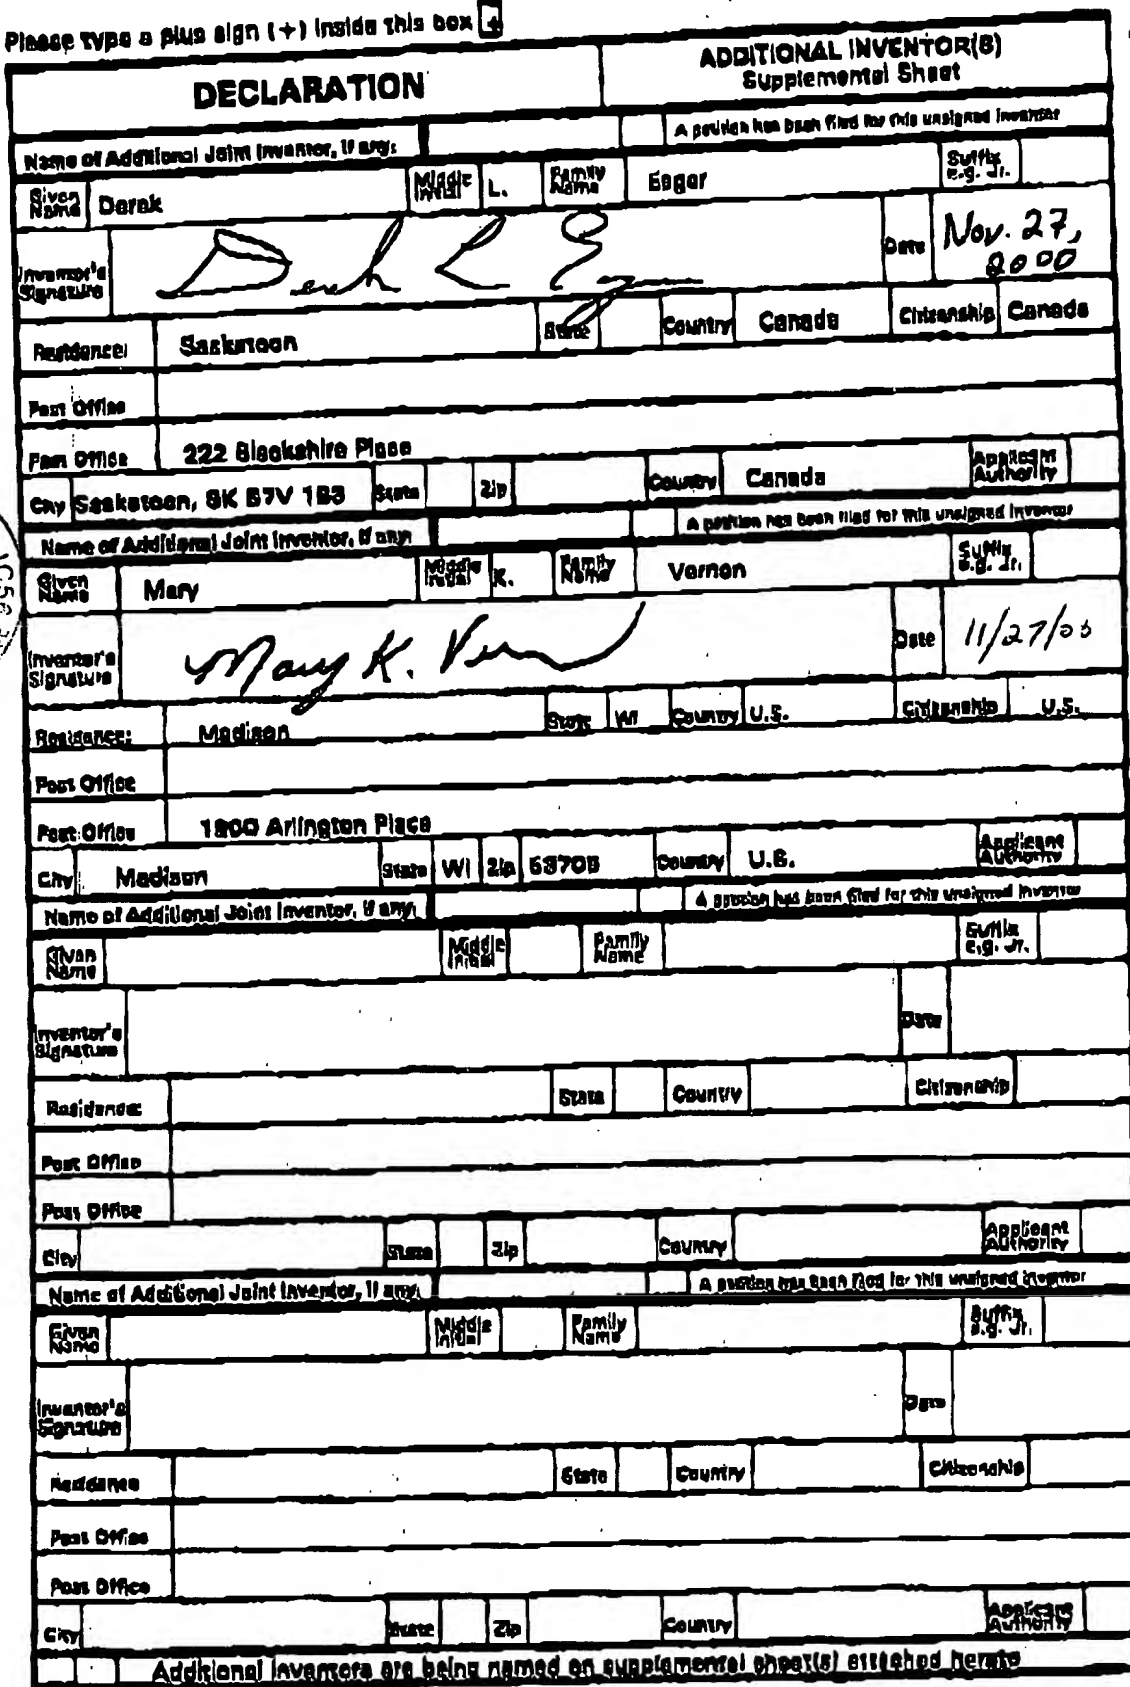 Please type a plus sign (+) inside this box +
DECLARATION
ADDITIONAL INVENTOR(S)
Supplemental Sheet
Name of Additional Joint Inventor, if any:
A petition has been filed for this unsigned inventor
Given Name Derek Middle Initial L. Family Name Eager Suffix e.g. Jr.
Inventor's Signature Derek L Eager Date Nov. 27, 2000
Residence: Saskatoon State Country Canada Citizenship Canada
Post Office
Post Office 222 Blackshire Place
City Saskatoon, SK S7V 1B3 State Zip Country Canada Applicant Authority
Name of Additional Joint Inventor, if any:
A petition has been filed for this unsigned inventor
Given Name Mary Middle Initial K. Family Name Vernon Suffix e.g. Jr.
Inventor's Signature Mary K. Vernon Date 11/27/00
Residence: Madison State WI Country U.S. Citizenship U.S.
Post Office
Post Office 1900 Arlington Place
City Madison State WI Zip Country U.S. Applicant Authority
Name of Additional Joint Inventor, if any:
A petition has been filed for this unsigned inventor
Given Name Middle Initial Family Name Suffix e.g. Jr.
Inventor's Signature Date
Residence: State Country Citizenship
Post Office
Post Office
City State Zip Country Applicant Authority
Name of Additional Joint Inventor, if any:
A petition has been filed for this unsigned inventor
Given Name Middle Initial Family Name Suffix e.g. Jr.
Inventor's Signature Date
Residence State Country Citizenship
Post Office
Post Office
City State Zip Country Applicant Authority
Additional inventors are being named on supplemental sheet(s) attached hereto